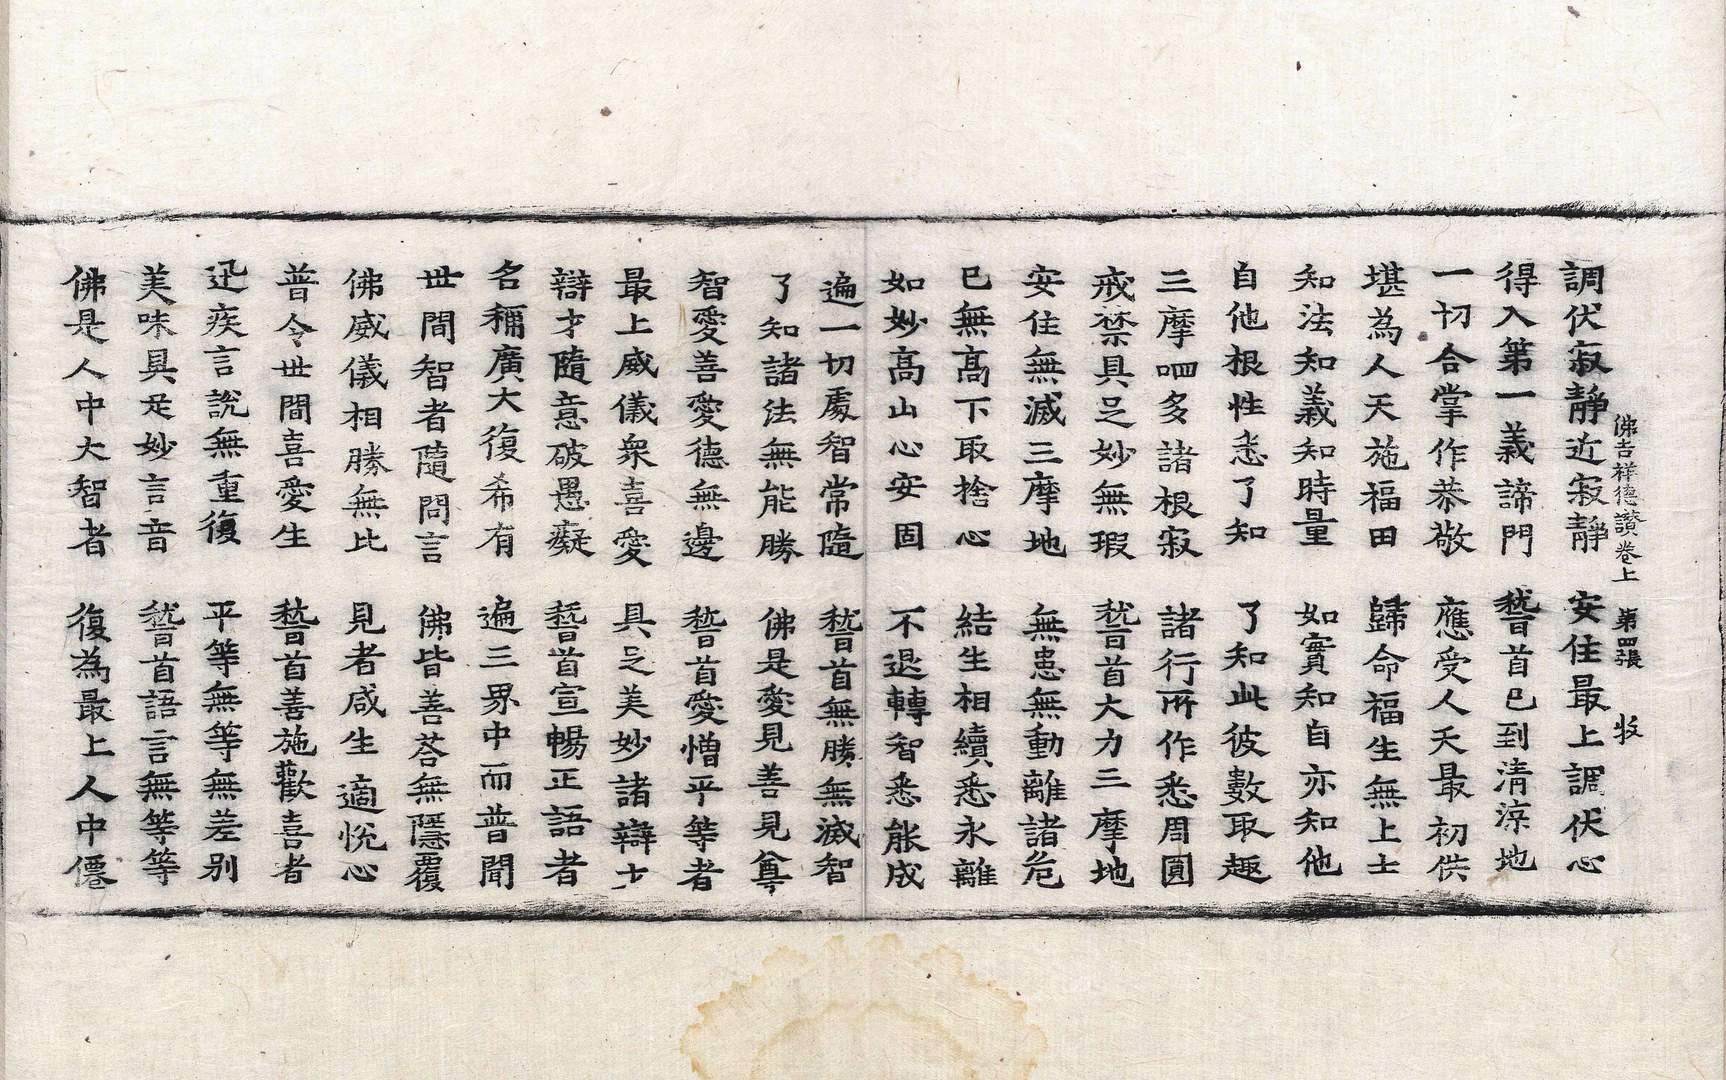 佛吉祥德讚卷上 第四張 牧
調伏寂靜近寂靜 安住最上調伏心
得入第一義諦門 嵇首已到清淨地
一切合掌作恭敬 應受人天最初供
堪為人天施福田 歸命福生無上士
知法知義知時量 如實知自亦知他
自他根性悉了知 了知此彼數取趣
三摩呬多諸根寂 諸行所作悉周圓
戒禁具足妙無瑕 嵇首大力三摩地
安住無滅三摩地 無恚無動離諸危
已無高下取捨心 結生相續悉永離
如妙高山心安固 不退轉智悉能成
遍一切處智常隨 嵇首無勝無滅智
了知諸法無能勝 佛是愛見善見尊
智愛善愛德無邊 嵇首愛憎平等者
最上威儀眾喜愛 具足美妙諸辯才
辯才隨意破愚癡 嵇首宣暢正語者
名稱廣大復希有 遍三界中而普聞
世間智者隨問言 佛皆善荅無隱覆
佛威儀相勝無比 見者咸生適悅心
普令世間喜愛生 嵇首善施歡喜者
迅疾言說無重復 平等無等無差別
美味具足妙言音 嵇首語言無等等
佛是人中大智者 復為最上人中僊